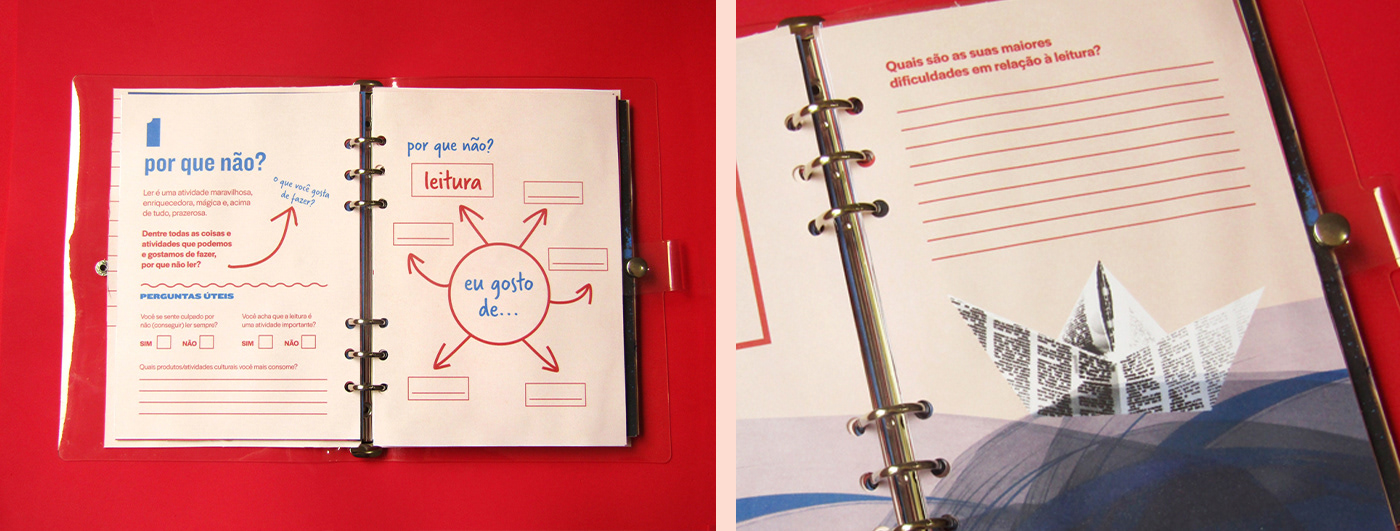 1
por que não?
o que você gosta
de fazer?
Ler é uma atividade maravilhosa,
enriquecedora, mágica e, acima
de tudo, prazerosa.
Dentre todas as coisas e
atividades que podemos
e gostamos de fazer,
por que não ler?
PERGUNTAS ÚTEIS
Você se sente culpado por
não (conseguir) ler sempre?
SIM NÃO
Você acha que a leitura é
uma atividade importante?
SIM NÃO
Quais produtos/atividades culturais você mais consome?
por que não?
leitura
eu gosto
de...
Quais são as suas maiores
dificuldades em relação à leitura?